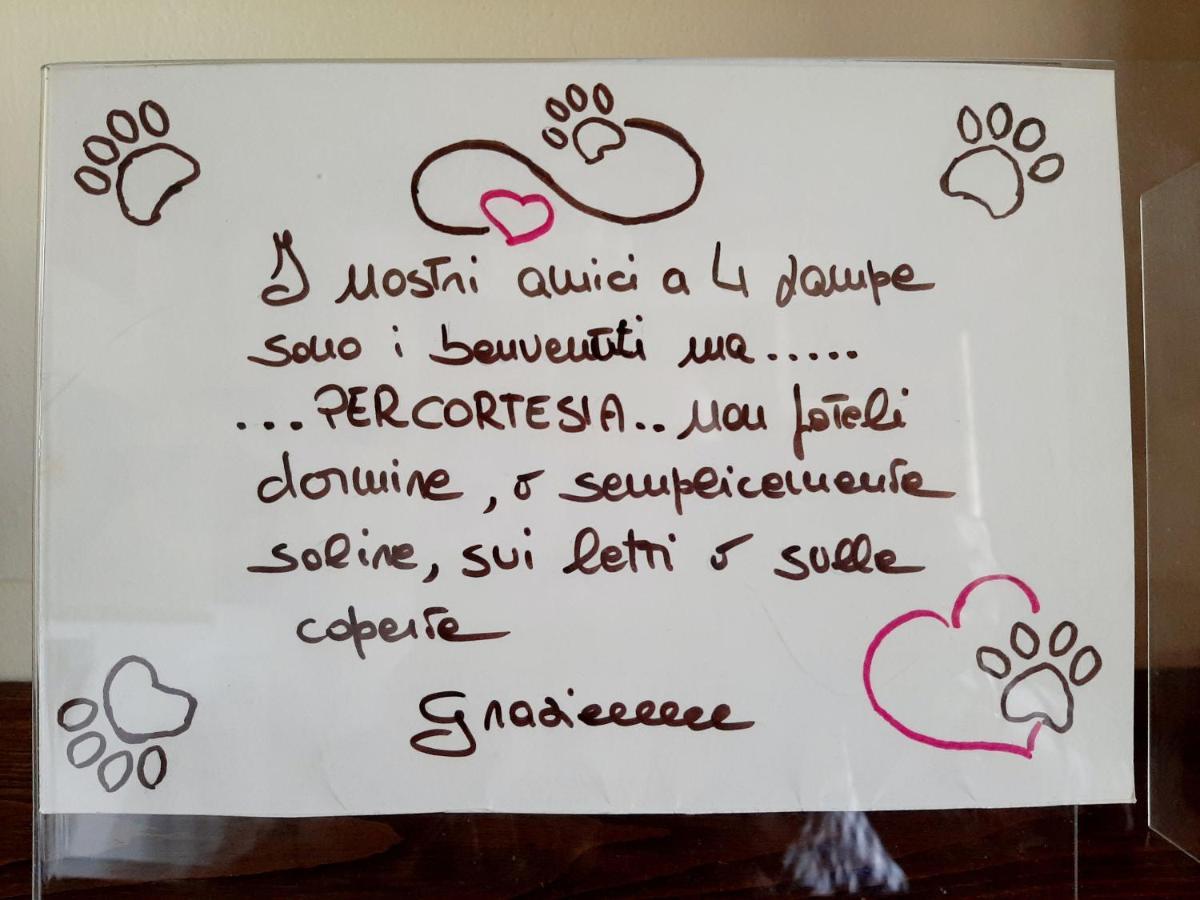 I nostri amici a 4 zampe
sono i benvenuti ma.....
....PER CORTESIA.. non fateli
dormire, o semplicemente
salire, sui letti o sulle
coperte
Grazieeeeee